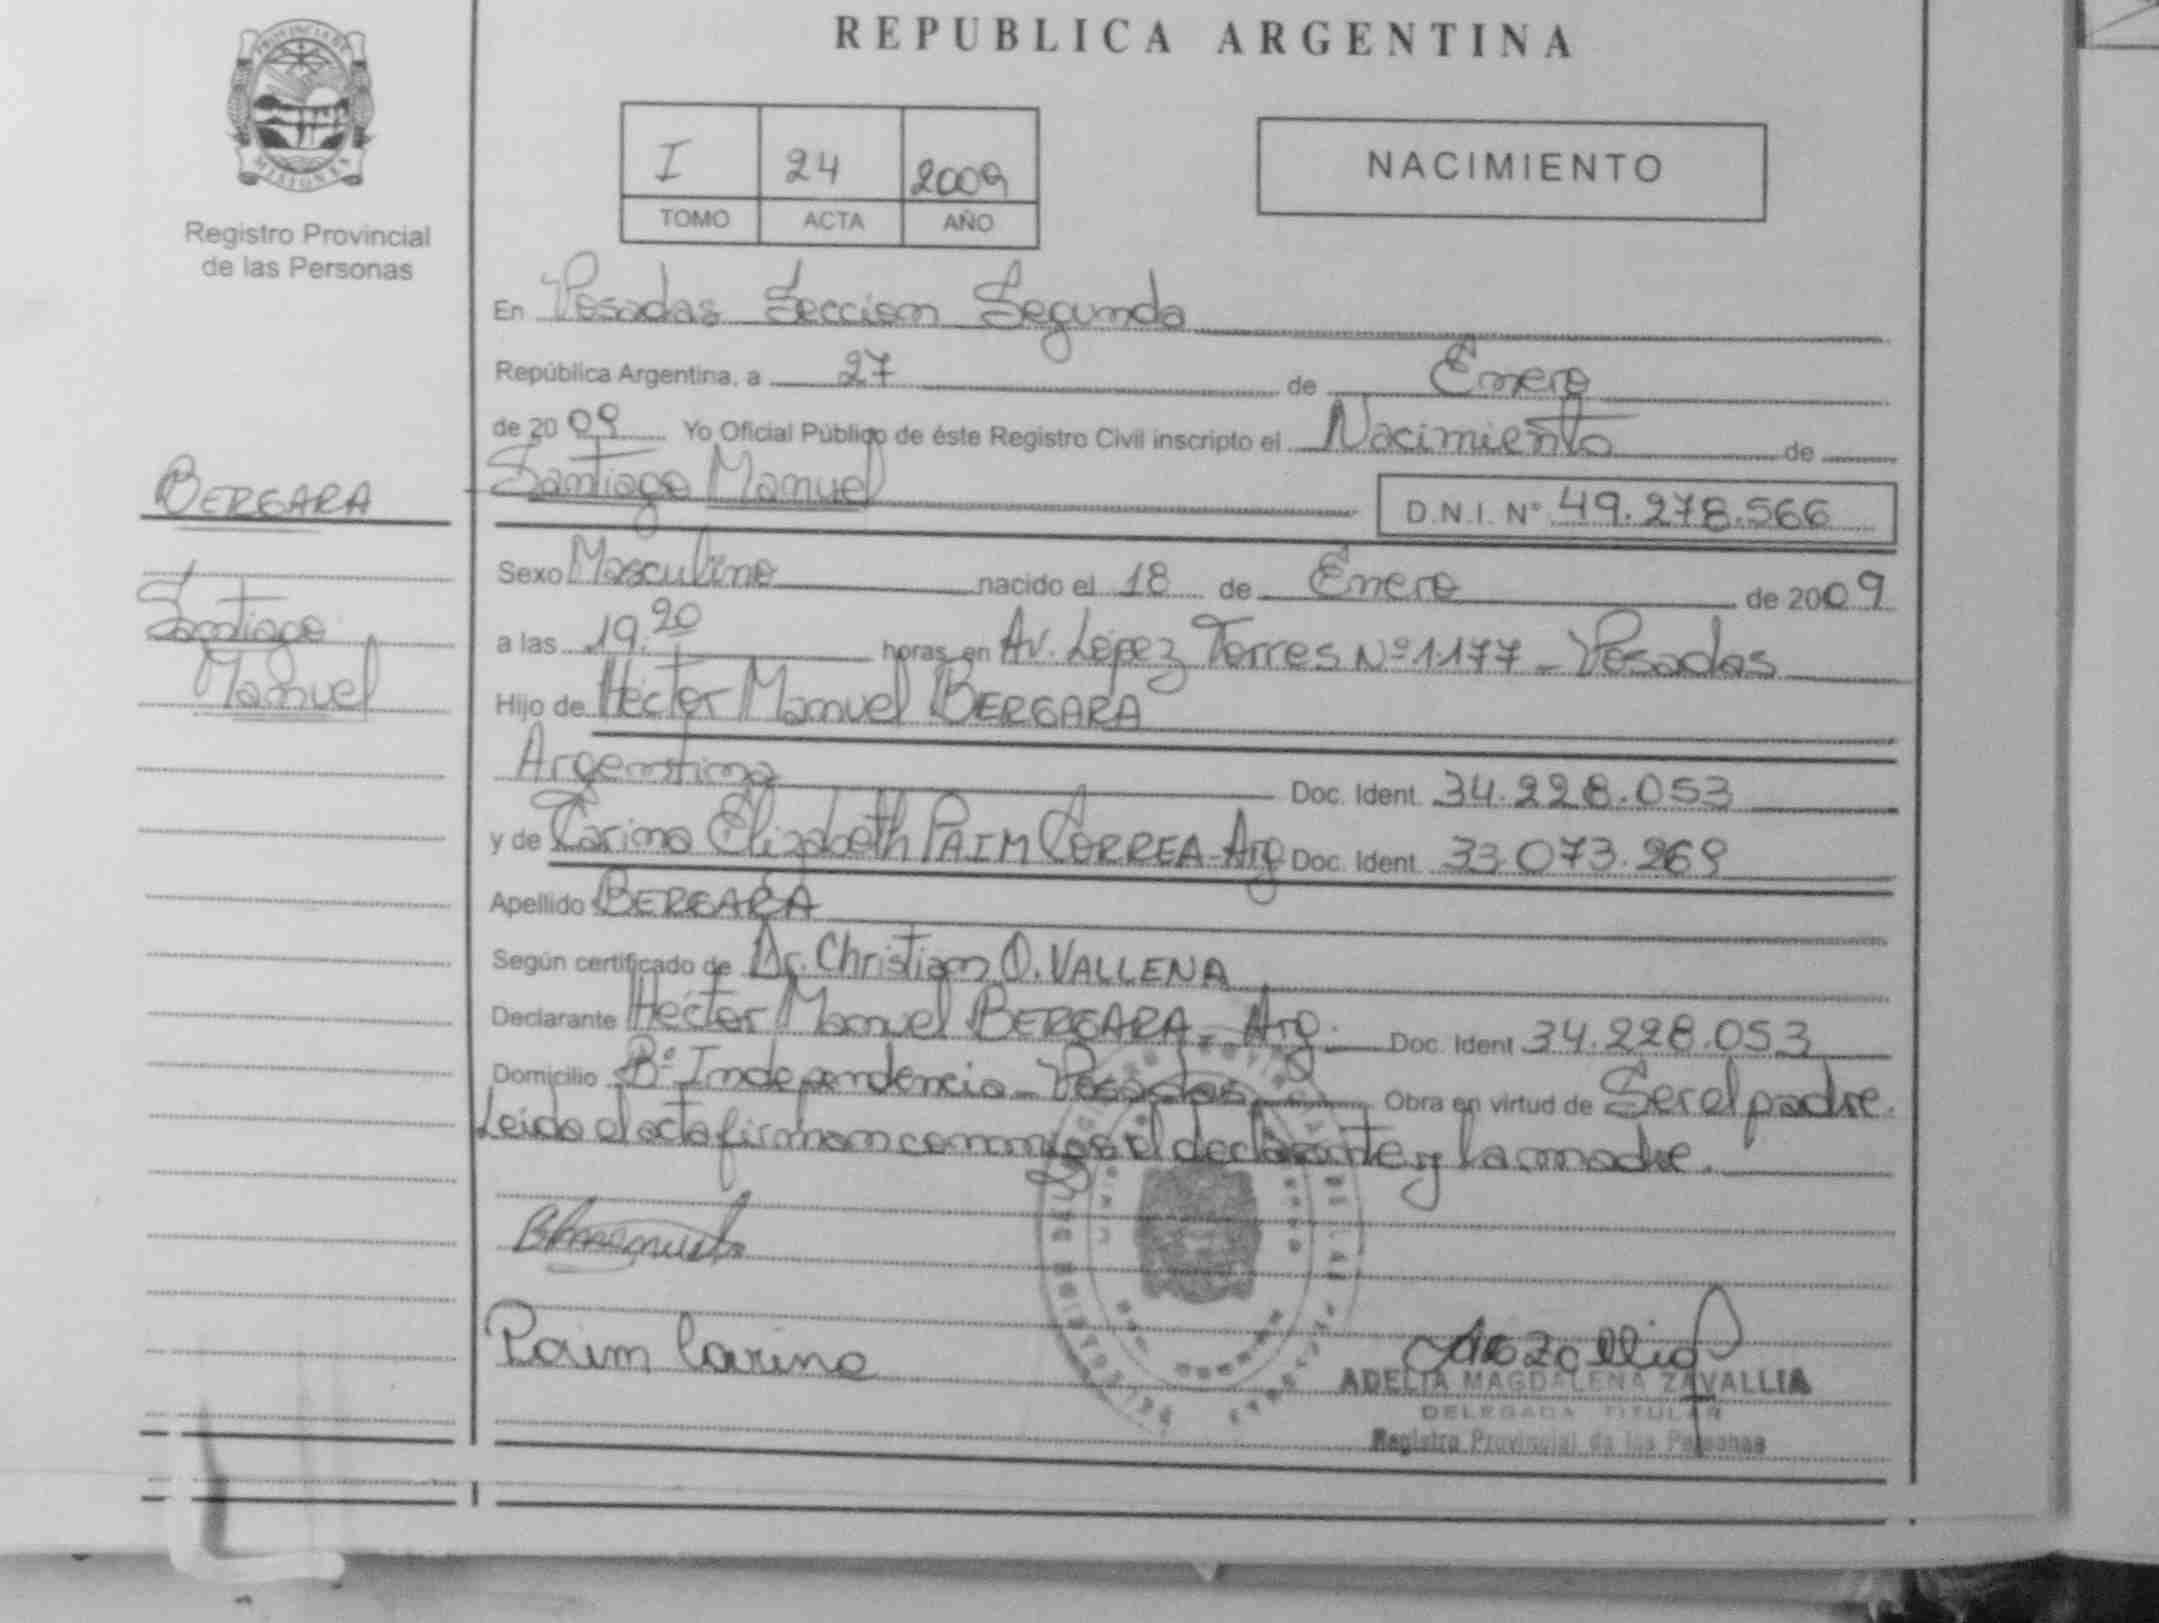 REPUBLICA ARGENTINA
PROVINCIA DE
MISIONES
Registro Provincial
de las Personas
I 24 2009
TOMO ACTA AÑO
NACIMIENTO
En Posadas Sección Segunda
República Argentina, a 27 de Enero
de 2009 Yo Oficial Público de éste Registro Civil inscripto el Nacimiento de
Santiago Manuel D.N.I. N° 49.278.566
BERGARA
Santiago
Manuel
Sexo Masculino nacido el 18 de Enero de 2009
a las 19.20 horas en Av. López Torres Nº 1177 - Posadas
Hijo de Héctor Manuel BERGARA
Argentina Doc. Ident. 34.228.053
y de Carina Elizabeth PAIM CORREA - Arg Doc. Ident. 33.073.269
Apellido BERGARA
Según certificado de Dr. Christian O. VALLENA
Declarante Héctor Manuel BERGARA - Arg. Doc. Ident 34.228.053
Domicilio Bº Independencia - Posadas Obra en virtud de Ser el padre.
Leída el acta firman conmigo el declarante y la madre.
Paim Carina
ADELIA MAGDALENA ZAVALLIA
DELEGADA TITULAR
Registro Provincial de las Personas